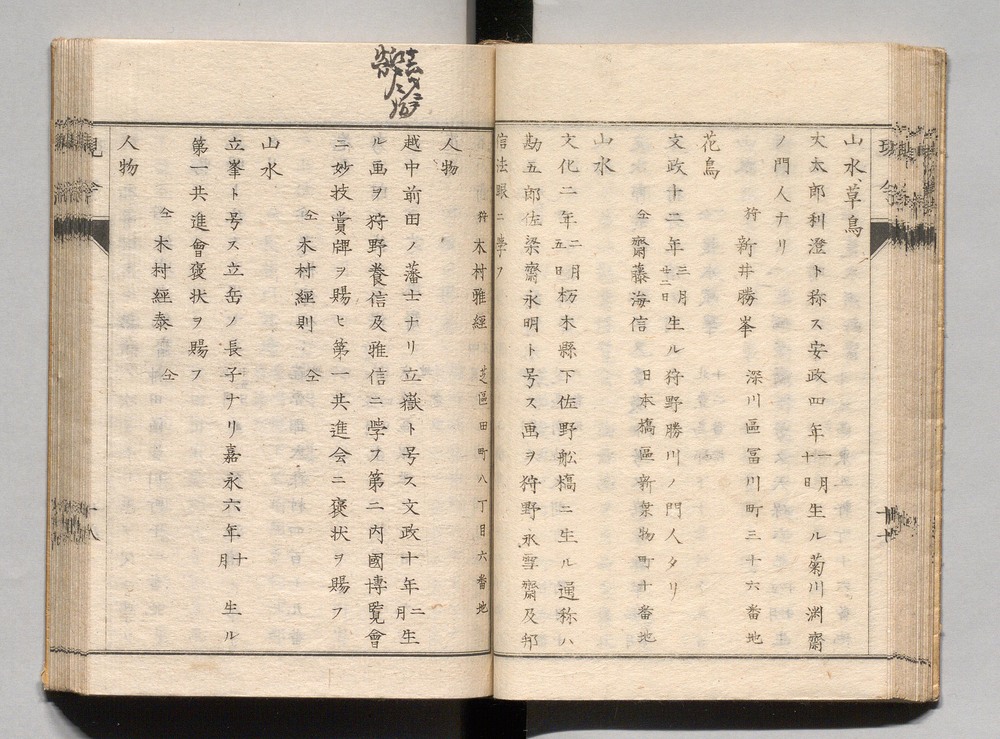 山水、草鳥
太太郎利澄ト称ス安政四年一月十日生ル菊川渊齋
ノ門人ナリ
狩 新井勝峯 深川區冨川町三十六番地
花鳥
文政十二年三月廿三日生ル狩野勝川ノ門人タリ
仝 齋藤海信 日本橋區新乗物町十番地
山水
文化二年二月五日栃木縣下佐野舩橋ニ生ル通称ハ
勘五郎佐梁齋永明ト号ス画ヲ狩野永雪齋及邦
信法眼ニ学フ
狩 木村雅經 芝區田町八丁目六番地
人物
越中前田ノ藩士ナリ立嶽ト号ス文政十年二月生
ル画ヲ狩野養信及雅信ニ学フ第二内國博覧會
ニ妙技賞牌ヲ賜ヒ第一共進会ニ褒状ヲ賜フ
仝 木村經則 仝
山水
立峯ト号ス立岳ノ長子ナリ嘉永六年十月生ル
第一共進會褒状ヲ賜フ
仝 木村經泰 仝
人物